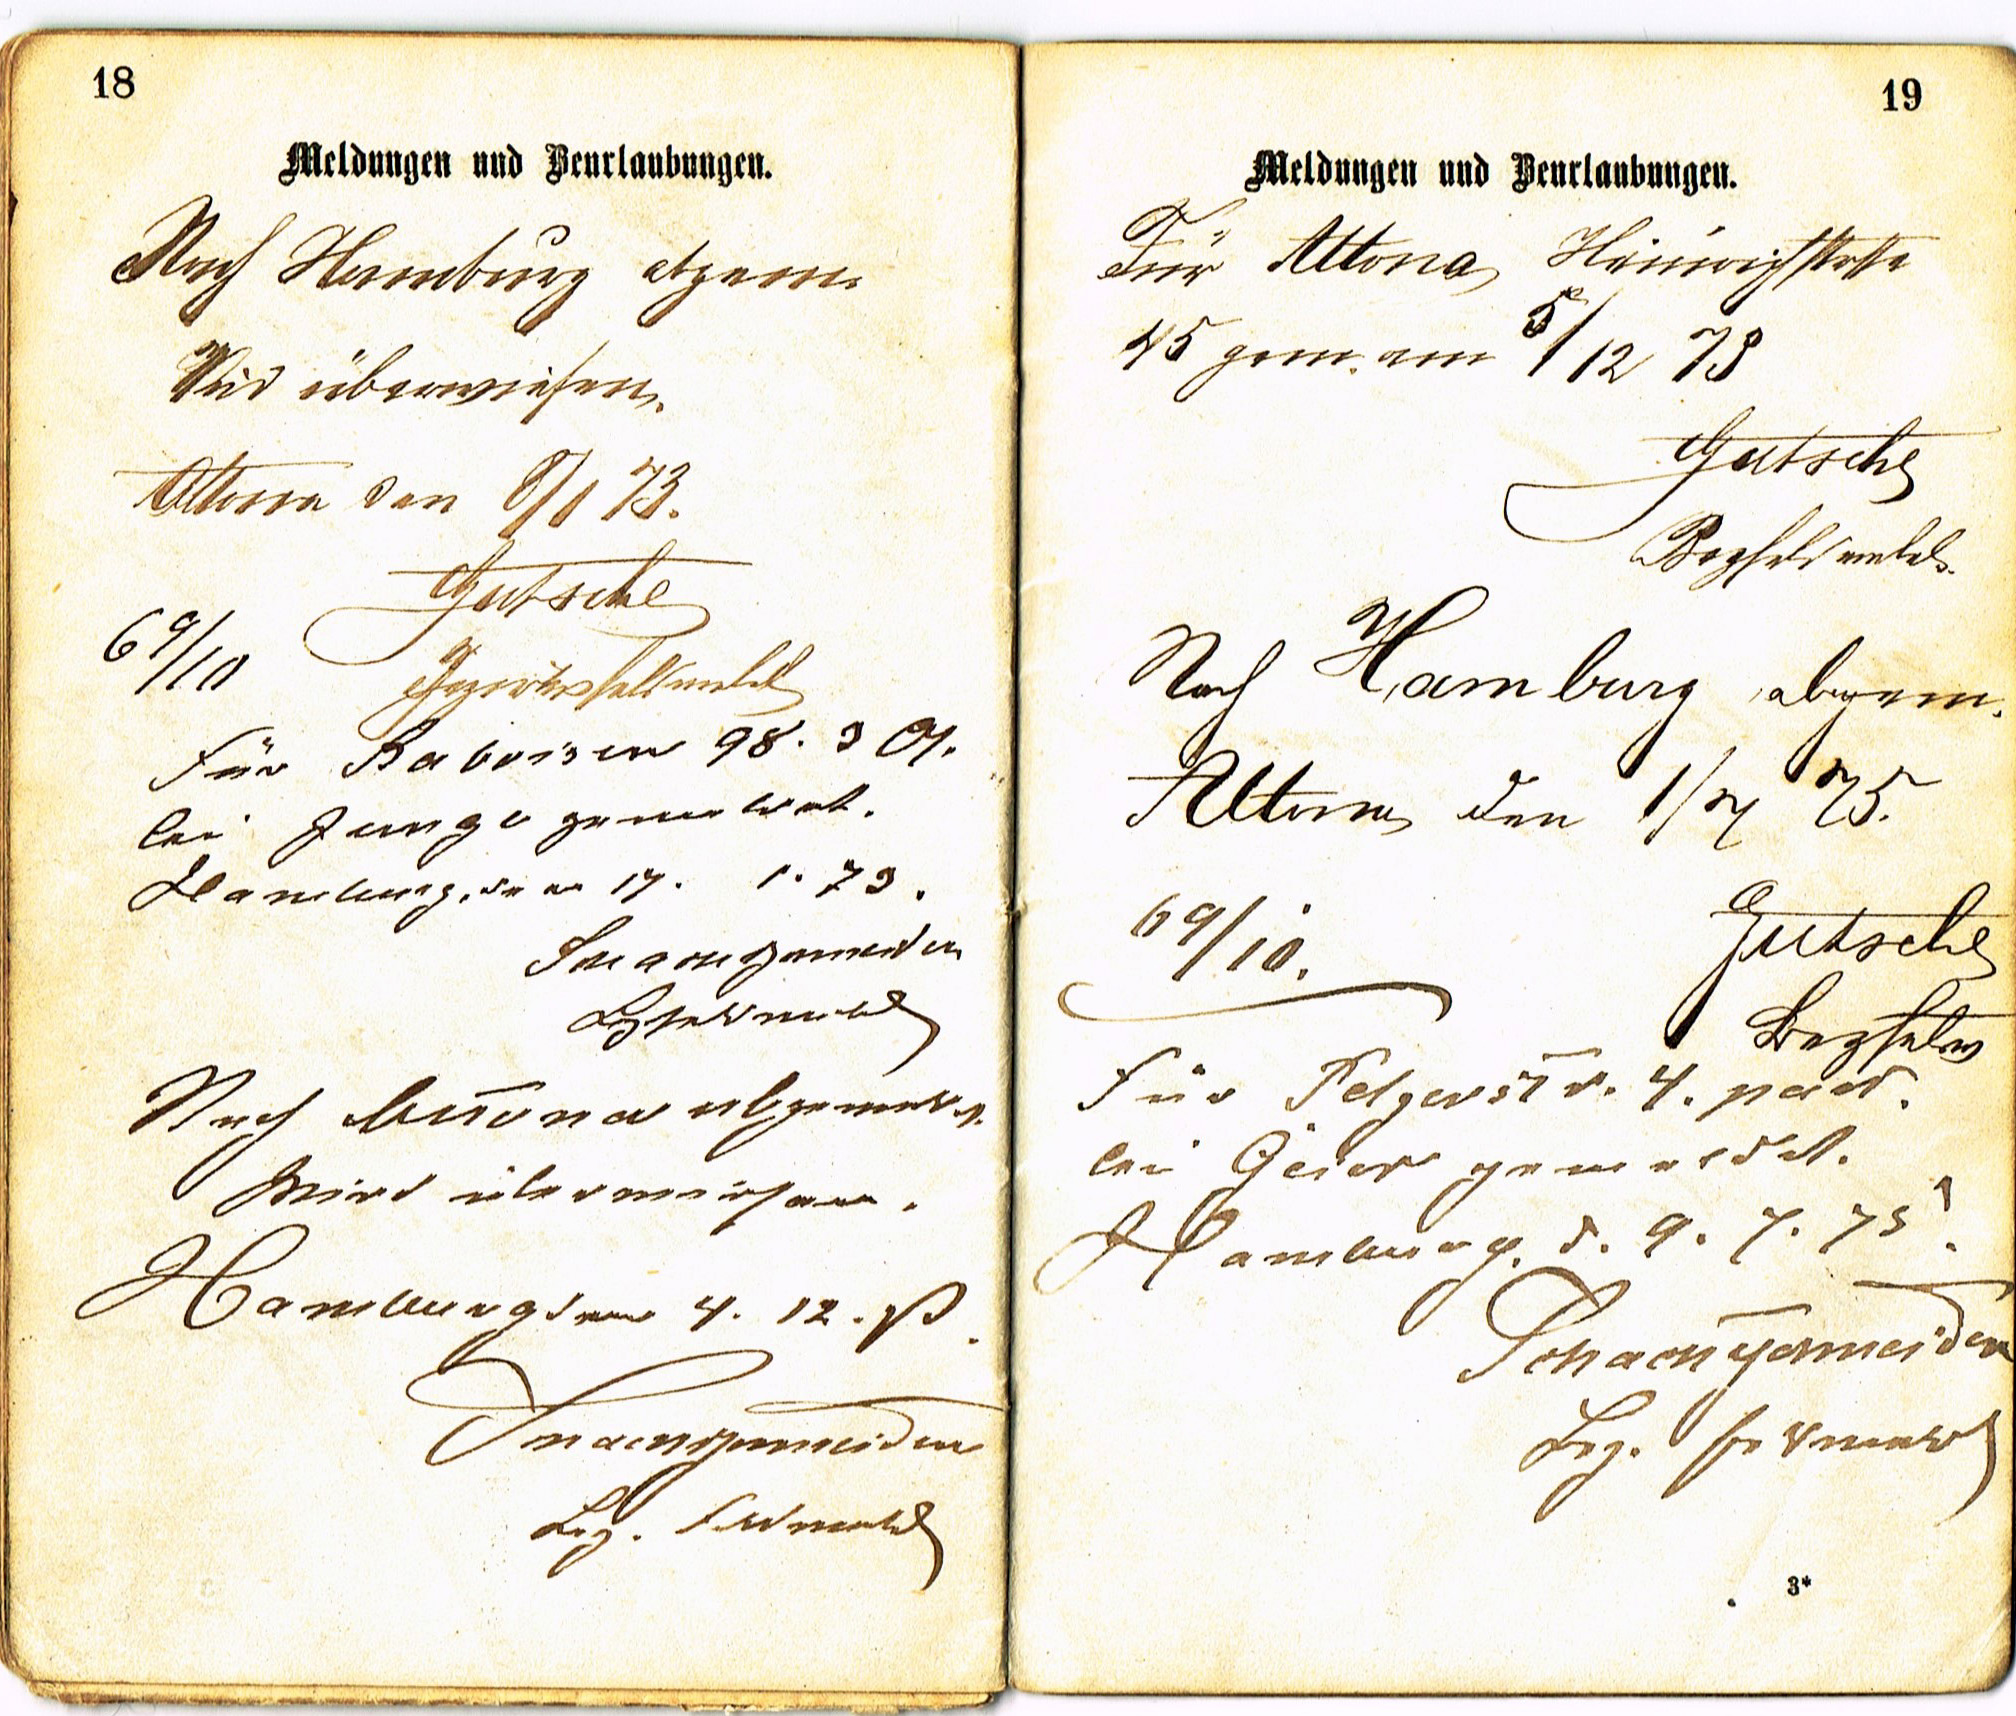 18
Meldungen und Beurlaubungen.
Nach Hamburg abgem.
Wird überwiesen.
Altona den 8/1 73.
Gutsche
69/10
Bezirksfeldwebel
Für Raboisen 98. 3 Et.
bei Junge gemeldet.
Hamburg, den 17. 1. 73.
Bzfeldwebel
Nach Altona abgemeldet.
Wird überwiesen.
Hamburg den 4. 12. 73.
Bez. Feldwebel
19
Meldungen und Beurlaubungen.
Für Altona Heinrichstraße
45 gem. am 5/12 73
Gutsche
Bezfeldwebel.
Nach Hamburg abgem.
Altona den 1/7 75.
69/10.
Gutsche
Bezfeldw
Für Pelzerstr. 4. part.
bei Geier gemeldet.
Hamburg, d. 9. 7. 75.
Bez. Feldwebel
3*